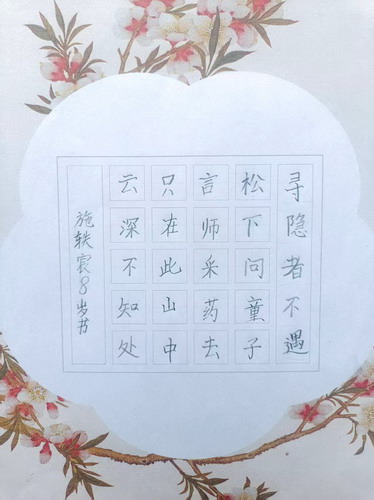 寻隐者不遇
松下问童子
言师采药去
只在此山中
云深不知处
施轶宸8岁书